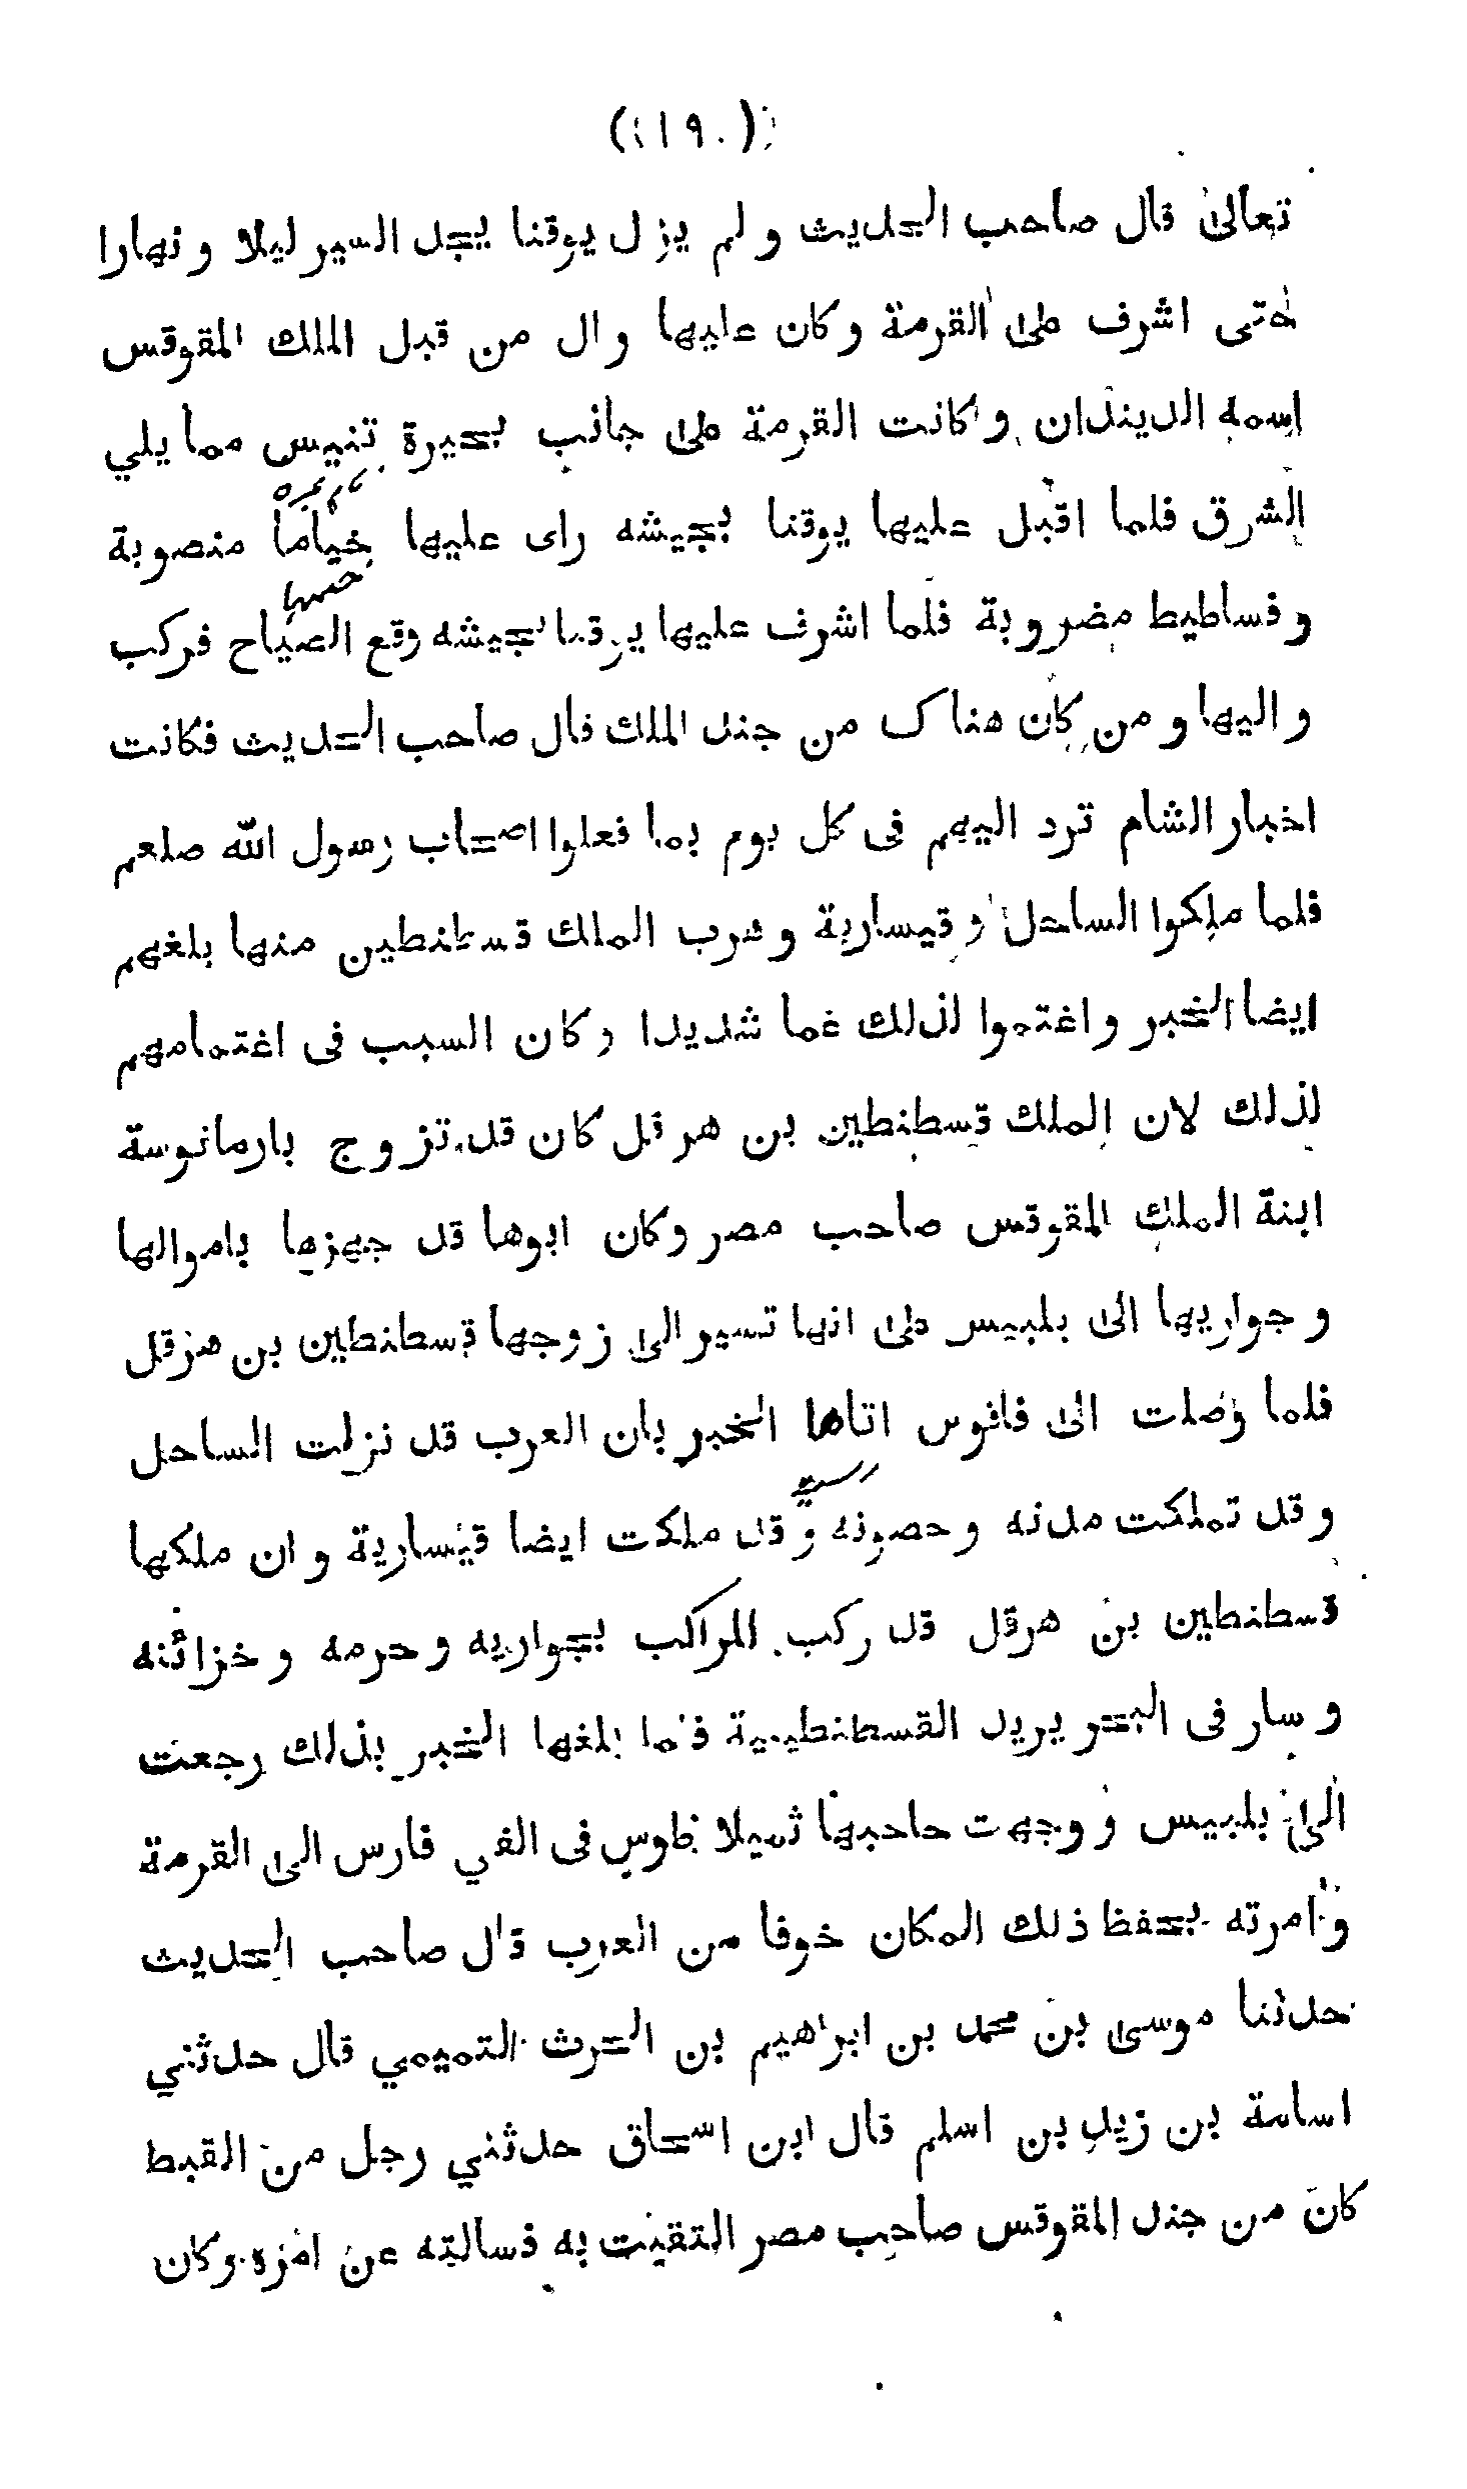 (١٩٠)
تعالى قال صاحب الحديث و لم يزل يوقنا يجد السير ليلا و نهارا
حتى اشرف على القرمة وكان عليها وال من قبل الملك المقوقس
اسمه الديندان وكانت القرمة على جانب بحيرة تنيس مما يلي
الشرق فلما اقبل عليها يوقنا بجيشه راى عليها خياما منصوبة
وفساطيط مضروبة فلما اشرف عليها يوقنا بجيشه وقع الصياح فركب
واليها ومن كان هناك من جند الملك قال صاحب الحديث فكانت
اخبار الشام ترد اليهم فى كل يوم بما فعلوا اصحاب رسول الله صلعم
فلما ملكوا الساحل و قيسارية وهرب الملك قسطنطين منها بلغهم
ايضا الخبر واغتموا لذلك غما شديدا وكان السبب فى اغتمامهم
لذلك لان الملك قسطنطين بن هرقل كان قد تزوج بارمانوسة
ابنة الملك المقوقس صاحب مصر وكان ابوها قد جهزها باموالها
وجواريها الى بلبيس على انها تسير الى زوجها قسطنطين بن هرقل
فلما وصلت الى فاقوس اتاها الخبر بان العرب قد نزلت الساحل
وقد تملكت مدنه وحصونه وقد ملكت ايضا قيسارية وان ملكها
قسطنطين بن هرقل قد ركب المراكب بجواريه وحرمه وخزائنه
وسار فى البحر يريد القسطنطينية فلما بلغها الخبر بذلك رجعت
الى بلبيس و وجهت حاحبها ثميلا طوس فى الفي فارس الى القرمة
وامرته بحفظ ذلك المكان خوفا من العرب قال صاحب الحديث
حدثنا موسى بن محمد بن ابراهيم بن الحرث التميمي قال حدثني
اسامة بن زيد بن اسلم قال ابن اسحاق حدثني رجل من القبط
كان من جند المقوقس صاحب مصر التقيت به فسالته عن امره وكان